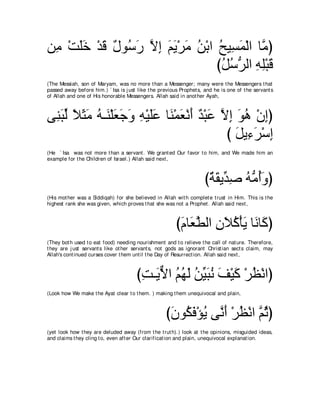 (مَّا الْمَسِيحُ ابْنُ مَرْيَمَ إِلاَّ رَسُولٌ قَدْ خَلَتْ مِن
قَبْلِهِ الرُّسُلُ)
(The Messiah, son of Maryam, was no more than a Messenger; many were the Messengers that
passed away before him.) `Isa is just like the previous Prophets, and he is one of the servants
of Allah and one of His honorable Messengers. Allah said in another Ayah,
(إِنْ هُوَ إِلاَّ عَبْدٌ أَنْعَمْنَا عَلَيْهِ وَجَعَلْنَـهُ مَثَلاً لِّبَنِى
إِسْرَءِيلَ )
(He `Isa was not more than a servant. We granted Our favor to him, and We made him an
example for the Children of Israel.) Allah said next,
(وَأُمُّهُ صِدِّيقَةٌ)
(His mother was a Siddiqah) for she believed in Allah with complete trust in Him. This is the
highest rank she was given, which proves that she was not a Prophet. Allah said next,
(كَانَا يَأْكُلاَنِ الطَّعَامَ)
(They both used to eat food) needing nourishment and to relieve the call of nature. Therefore,
they are just servants like other servants, not gods as ignorant Christian sects claim, may
Allah's continued curses cover them until the Day of Resurrection. Allah said next,
(انْظُرْ كَيْفَ نُبَيِّنُ لَهُمُ الاٌّيَـتِ)
(Look how We make the Ayat clear to them. ) making them unequivocal and plain,
(ثُمَّ انْظُرْ أَنَّى يُؤْفَكُونَ)
(yet look how they are deluded away (from the truth).) look at the opinions, misguided ideas,
and claims they cling to, even after Our clarification and plain, unequivocal explanation.